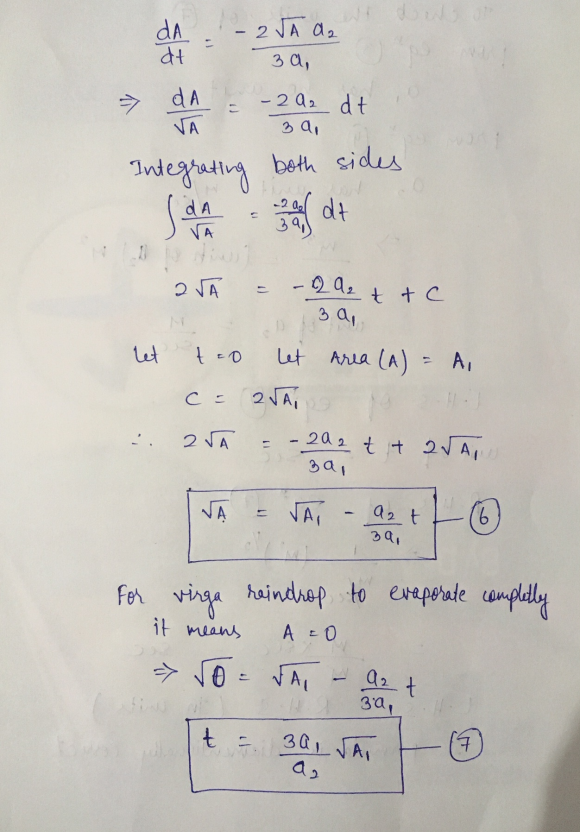 dA/dt = -2√A a₂ / 3a₁
⇒ dA/√A = -2a₂/3a₁ dt
Integrating both sides
∫ dA/√A = -2a₂/3a₁ ∫ dt
2√A = -2a₂/3a₁ t + C
Let t=0 Let Area (A) = A₁
C = 2√A₁
∴ 2√A = -2a₂/3a₁ t + 2√A₁
√A = √A₁ - a₂/3a₁ t — 6
For virga raindrop to evaporate completly
it means A = 0
⇒ √0 = √A₁ - a₂/3a₁ t
t = 3a₁/a₂ √A₁ — 7